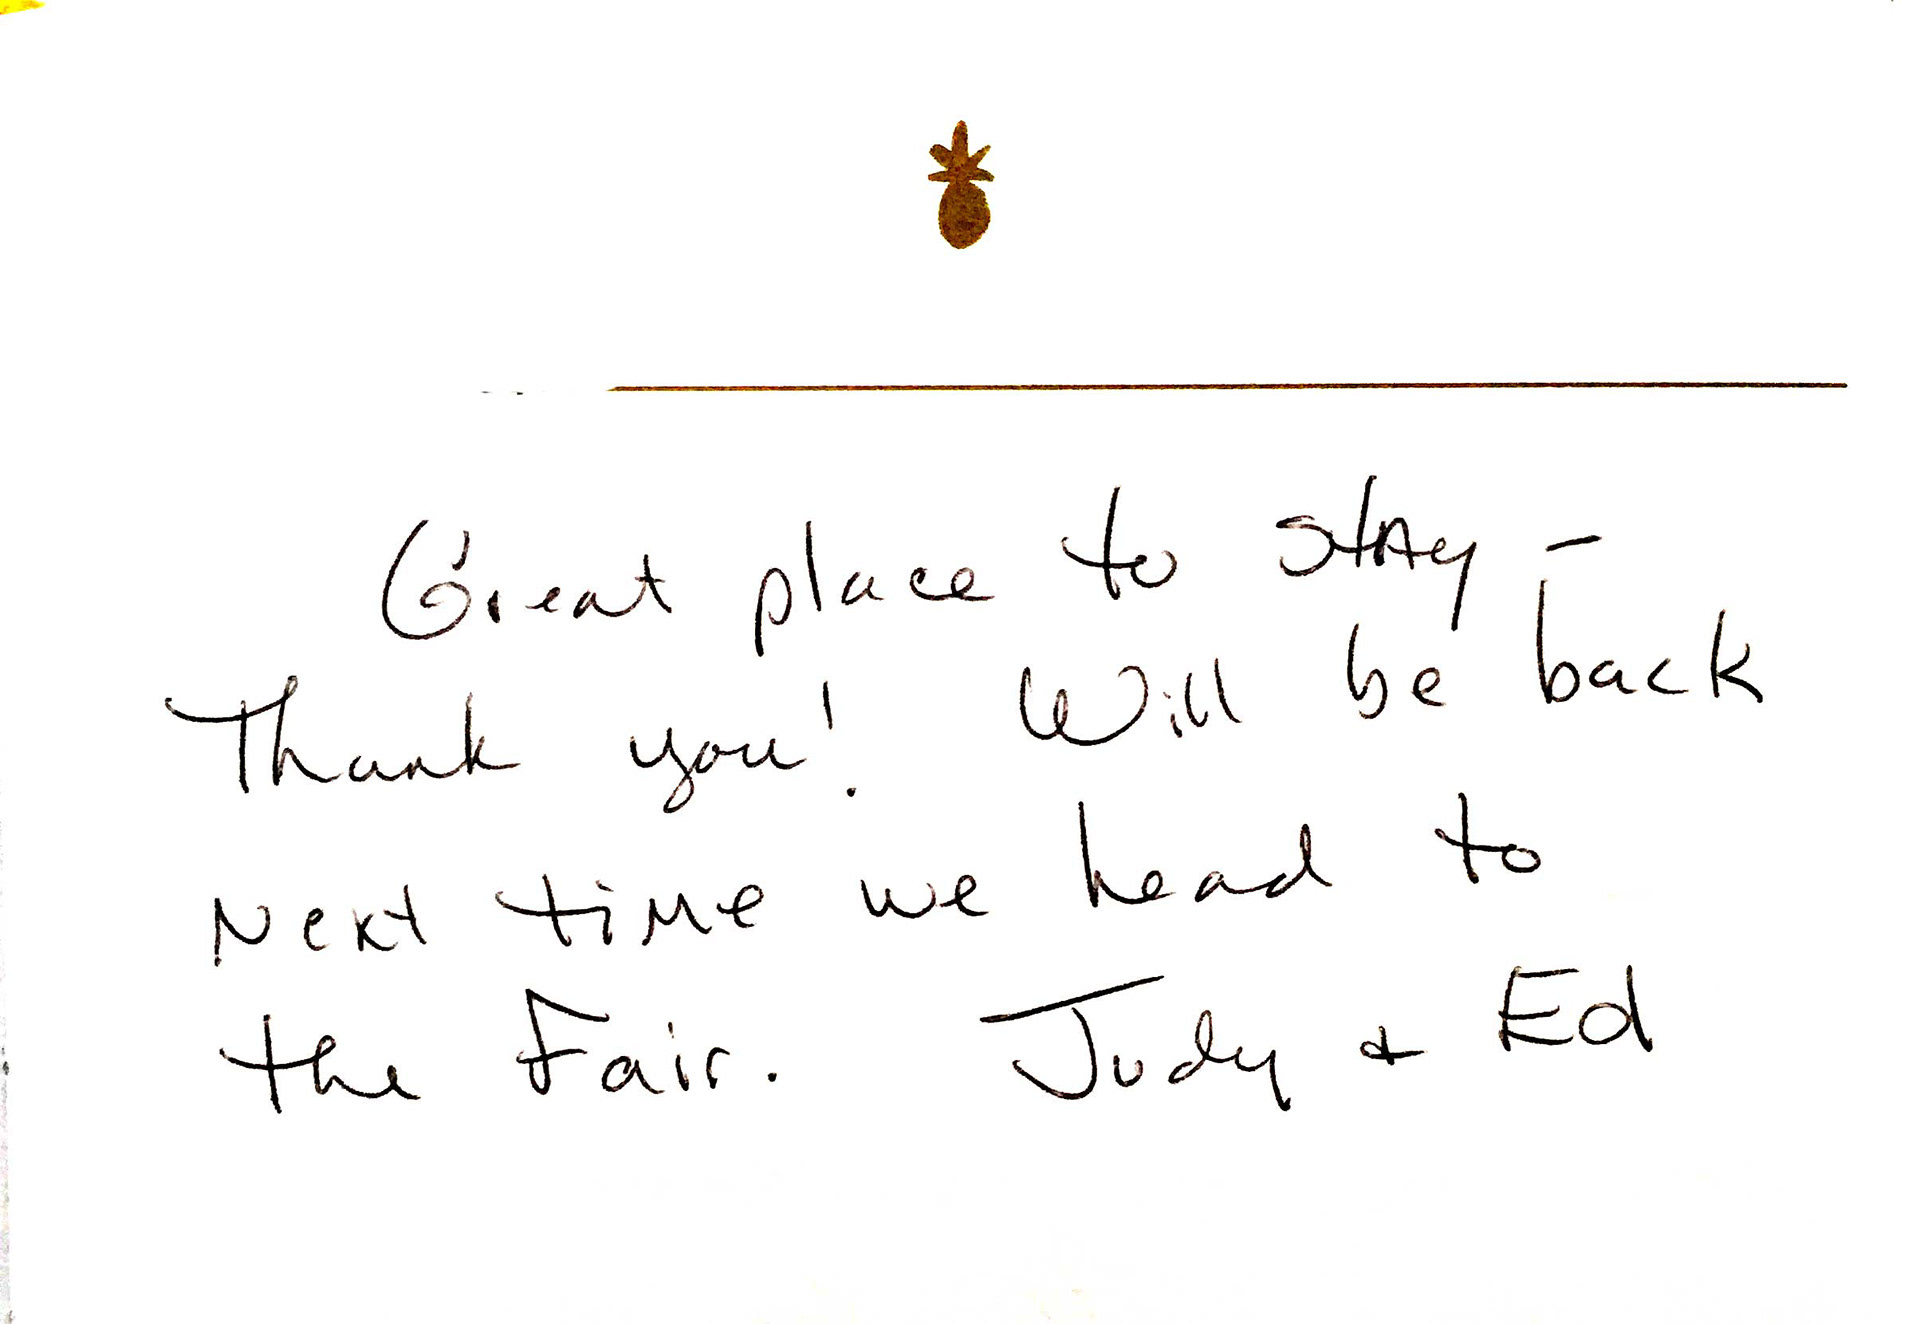 Great place to stay –
Thank you! Will be back
Next time we head to
the Fair. Judy & Ed